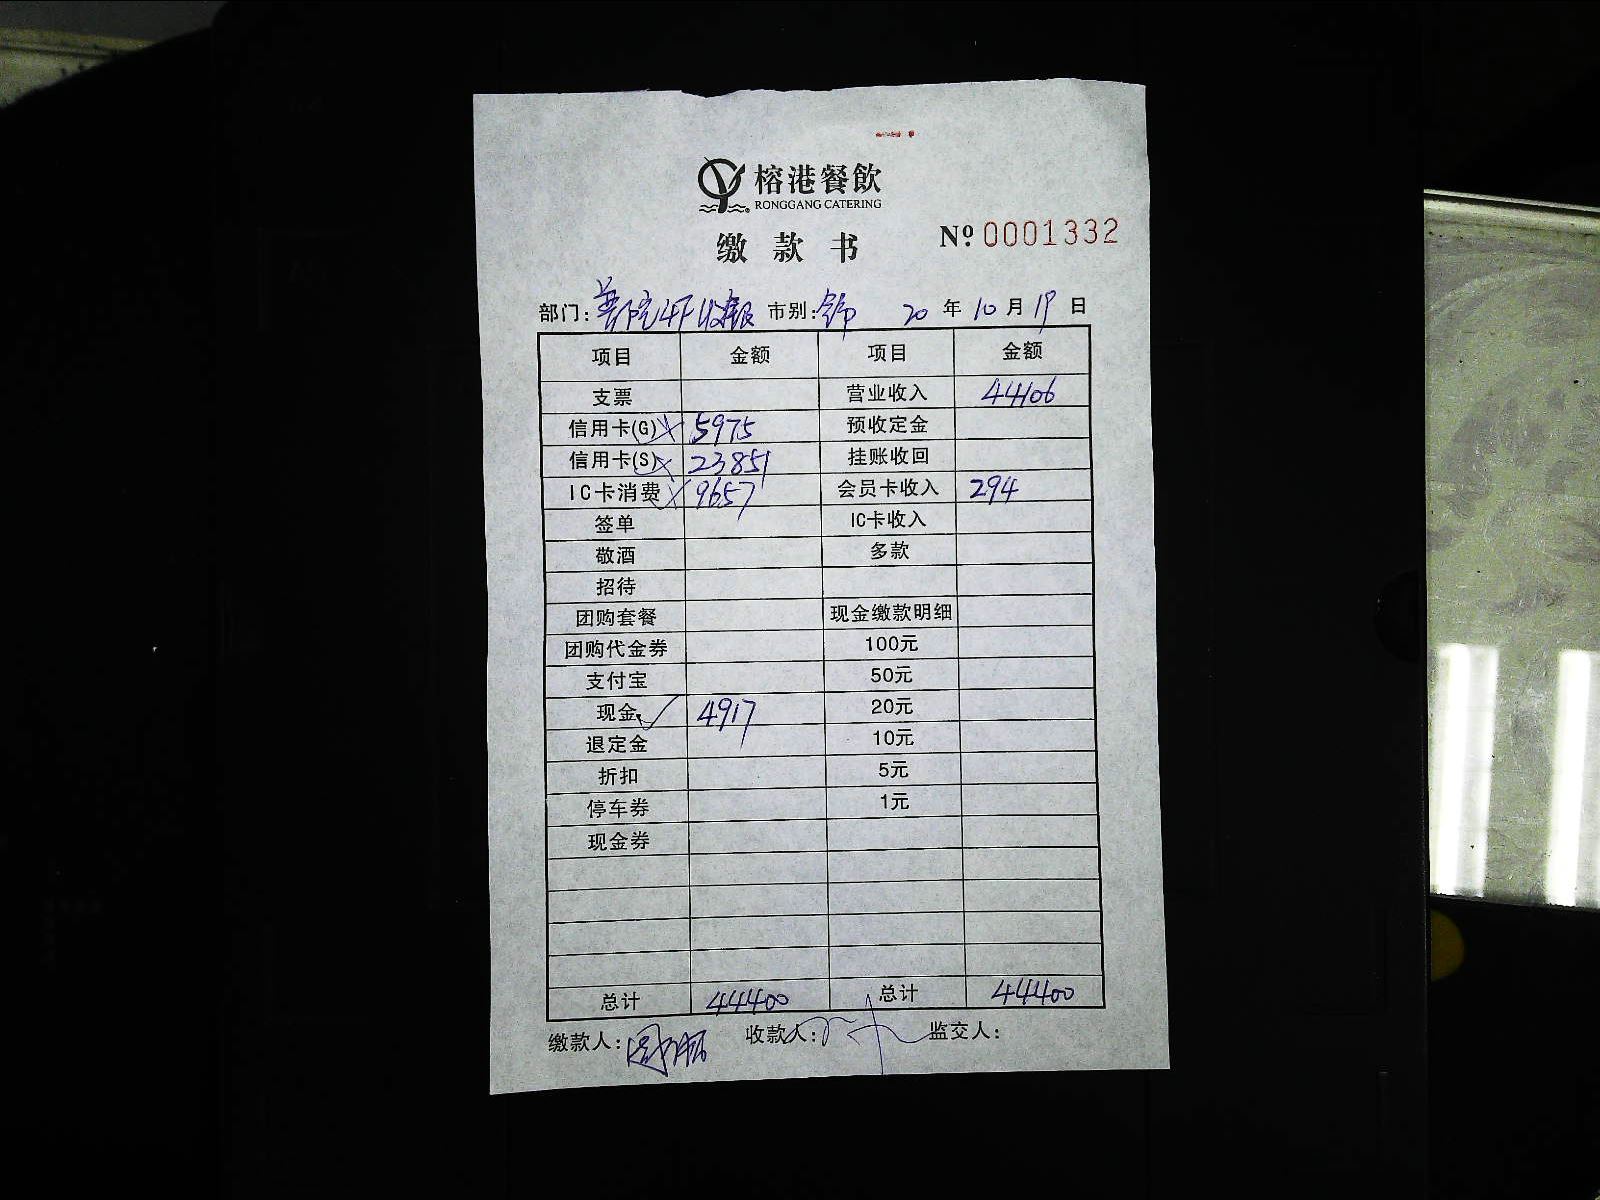 榕港餐飲
RONGGANG CATERING
缴款书 Nº 0001332
部门: 普陀4F收银 市别: 20年10月19日
项目 金额 项目 金额
支票 营业收入 44106
信用卡(G) 5975 预收定金
信用卡(S) 23851 挂账收回
IC卡消费 9657 会员卡收入 294
签单 IC卡收入
敬酒 多款
招待
团购套餐 现金缴款明细
团购代金券 100元
支付宝 50元
现金 4917 20元
退定金 10元
折扣 5元
停车券 1元
现金券
总计 44400 总计 44400
缴款人: 收款人: 监交人: